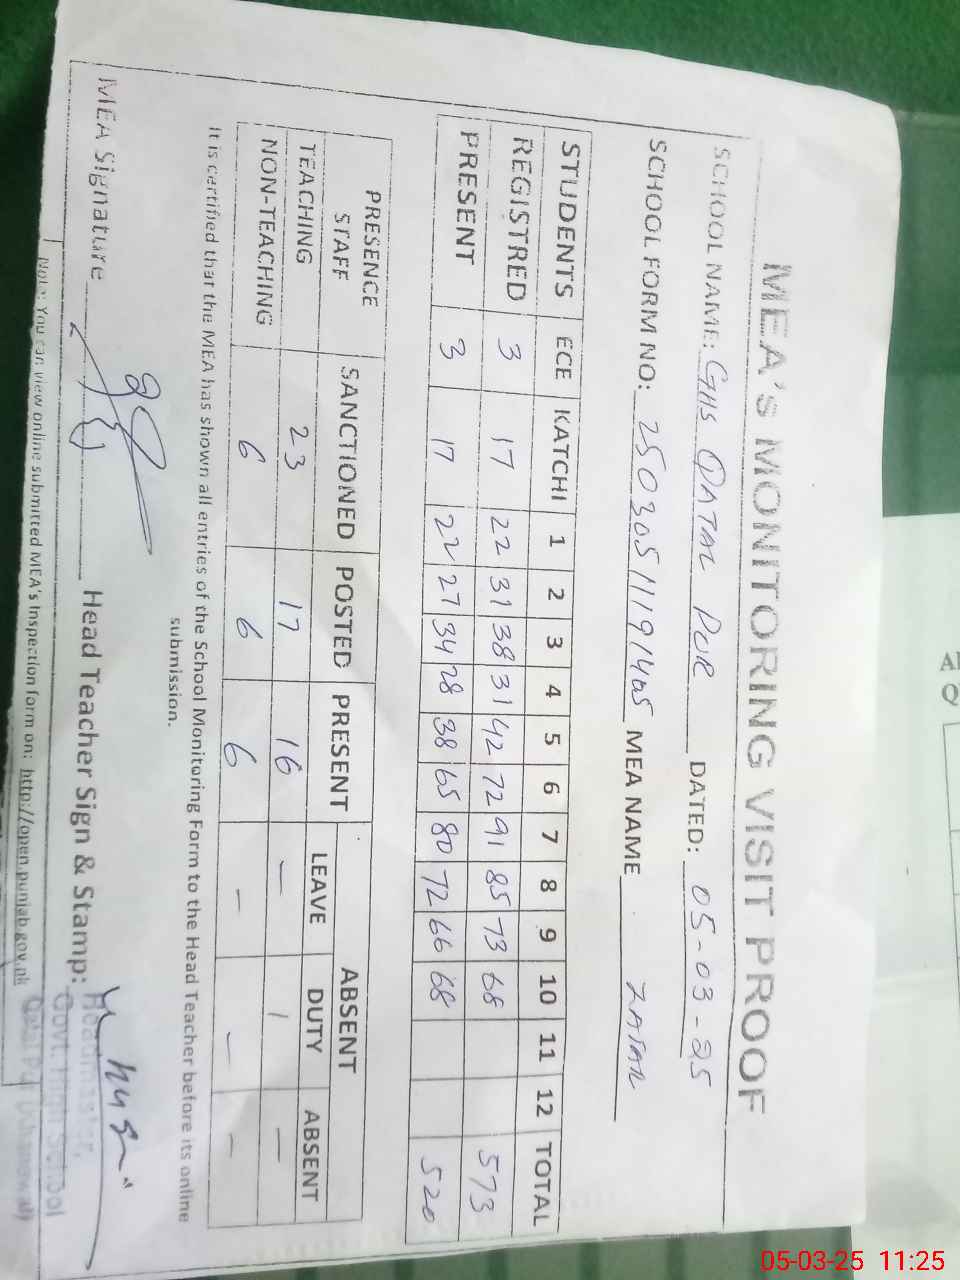 MEA's MONITORING VISIT PROOF
SCHOOL NAME: GHS QATAL PUR DATED: 05-03-25
SCHOOL FORM NO: 250305111191405 MEA NAME ZAFAR
STUDENTS ECE KATCHI 1 2 3 4 5 6 7 8 9 10 11 12 TOTAL
REGISTRED 3 17 22 31 38 31 42 72 91 85 73 68 573
PRESENT 3 17 22 27 34 28 38 65 80 72 66 68 520
PRESENCE STAFF SANCTIONED POSTED PRESENT ABSENT
LEAVE DUTY ABSENT
TEACHING 23 17 16 — 1 —
NON-TEACHING 6 6 6 — — —
It is certified that the MEA has shown all entries of the School Monitoring Form to the Head Teacher before its online
submission.
MEA Signature Head Teacher Sign & Stamp:
Headmaster,
Govt. High School
Note: You can view online submitted MEA's Inspection form on: http://open.punjab.gov.pk
05-03-25 11:25